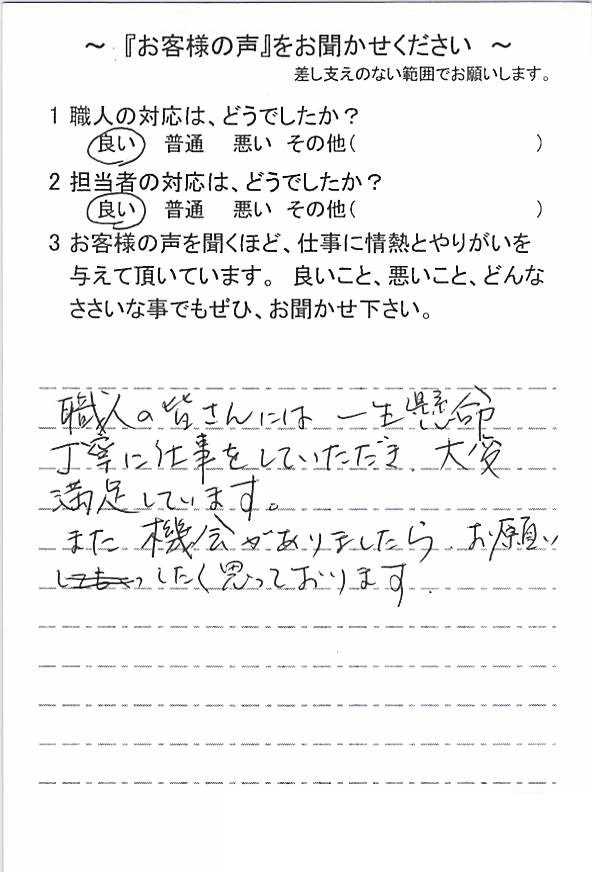 ～ 『お客様の声』をお聞かせください ～
差し支えのない範囲でお願いします。
1 職人の対応は、どうでしたか？
良い 普通 悪い その他( )
2 担当者の対応は、どうでしたか？
良い 普通 悪い その他( )
3 お客様の声を聞くほど、仕事に情熱とやりがいを
与えて頂いています。 良いこと、悪いこと、どんな
ささいな事でもぜひ、お聞かせ下さい。
職人の皆さんには 一生懸命
丁寧に仕事をしていただき、大変
満足しています。
また 機会がありましたら、お願い
したく思っております.